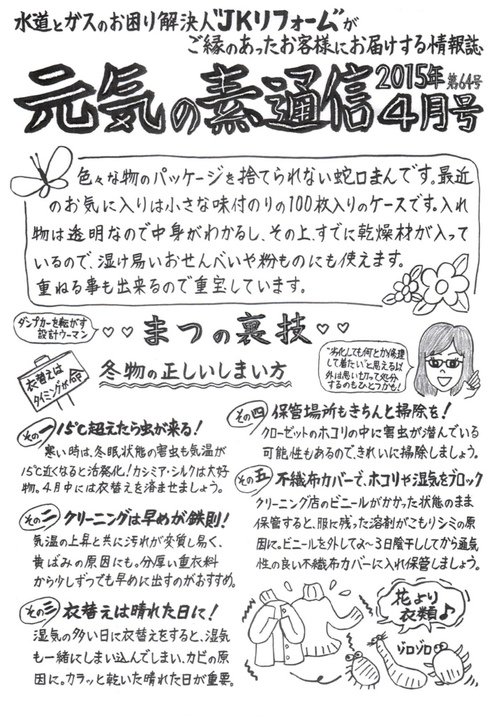 水道とガスのお困り解決人"JKリフォーム"が
ご縁のあったお客様にお届けする情報誌
元気の素通信
2015年
第64号
4月号
色々な物のパッケージを捨てられない蛇口まんです。最近
のお気に入りは小さな味付のりの100枚入りのケースです。入れ
物は透明なので中身がわかるし、その上、すでに乾燥材が入って
いるので、湿け易いおせんべいや粉ものにも使えます。
重ねる事も出来るので重宝しています。
ダンプカーを転がす
設計ウーマン
♡♡まつの裏技♡♡
冬物の正しいしまい方
衣替えは
タイミングが命
"劣化しても何とか修理
して着たい"と思える以
外は思い切って処分
するのもひとつかも!
その一 15℃超えたら虫が来る!
寒い時は、冬眠状態の害虫も気温が
15℃近くなると活発化!カシミア・シルクは大好
物。4月中には衣替えを済ませましょう。
その二 クリーニングは早めが鉄則!
気温の上昇と共に汚れが変質し易く、
黄ばみの原因にも。分厚い重衣料
から少しずつでも早めに出すのがおすすめ。
その三 衣替えは晴れた日に!
湿気の多い日に衣替えをすると、湿気
も一緒にしまい込んでしまい、カビの原
因に。カラッと乾いた晴れた日が重要。
その四 保管場所もきちんと掃除を!
クローゼットのホコリの中に害虫が潜んでいる
可能性もあるので、きれいに掃除しましょう。
その五 不織布カバーで、ホコリや湿気をブロック
クリーニング店のビニールがかかった状態のまま
保管すると、服に残った溶剤がこもりシミの原
因に。ビニールを外して2〜3日陰干ししてから通気
性の良い不織布カバーに入れ保管しましょう。
花より
衣類♪
ゾロゾロ